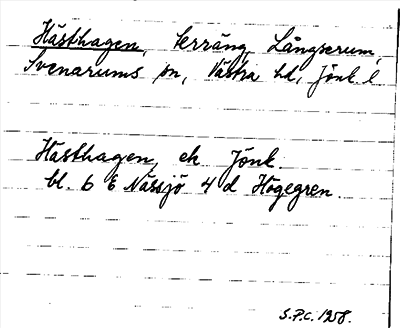 Hästhagen, terräng, Långserum,
Svenarums sn, Västra hd, Jönk. l
Hästhagen, ek Jönk.
bl. 6 E Nässjö 4 d Högegren.
S.P.C. 1958.